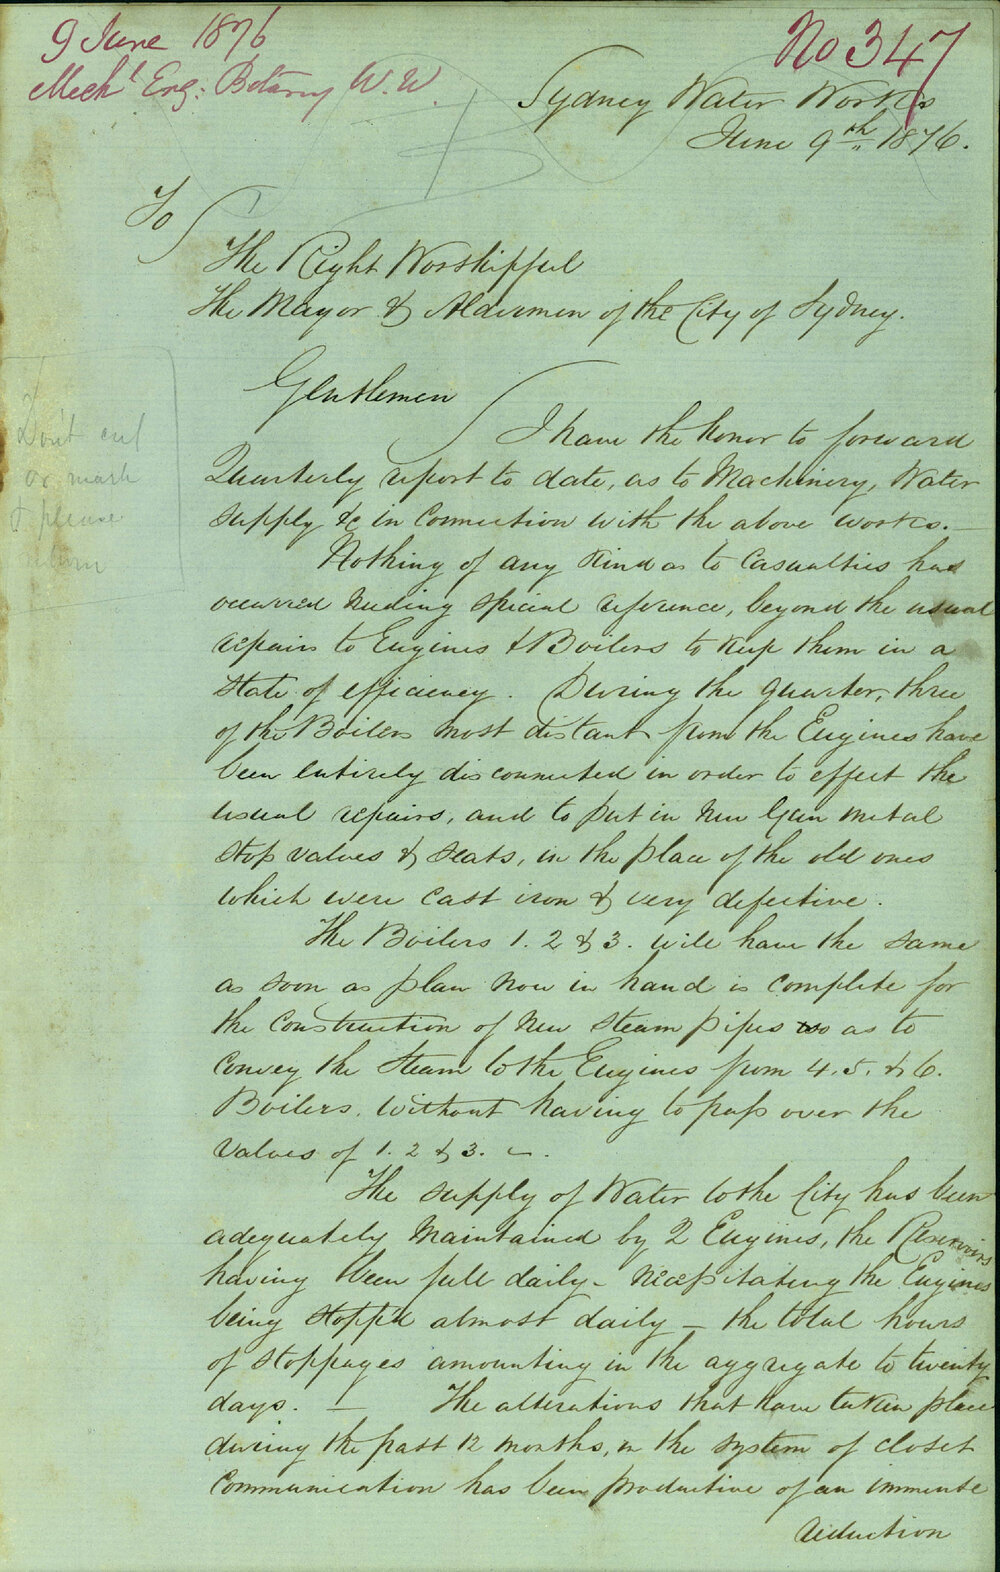 9 June 1876
Mech^l Eng: Botany W.W.
No 347
Sydney Water Works
June 9th 1876.
To
The Right Worshipful
The Mayor & Aldermen of the City of Sydney.
Gentlemen
I have the honor to forward
Quarterly report to date, as to Machinery, Water
supply &c in connection with the above works. —
Nothing of any kind as to casualties has
occurred needing special reference, beyond the usual
repairs to Engines & Boilers to keep them in a
state of efficiency. During the quarter, three
of the Boilers most distant from the Engines have
been entirely disconnected in order to effect the
usual repairs, and to put in new Gun metal
stop valves & seats, in the place of the old ones
which were cast iron & very defective.
The Boilers 1. 2 & 3. will have the same
as soon as plan now in hand is complete for
the construction of new steam pipes so as to
convey the steam to the Engines from 4. 5. & 6.
Boilers. without having to pass over the
valves of 1. 2 & 3. —.
The supply of Water to the City has been
adequately maintained by 2 Engines, the Reservoirs
having been full daily – necessitating the Engines
being stopp'd almost daily – the total hours
of stoppages amounting in the aggregate to twenty
days. — The alterations that have taken place
during the past 12 months, in the system of closet
communication has been productive of an immense
reduction
Don't cut
or mark
& please
return